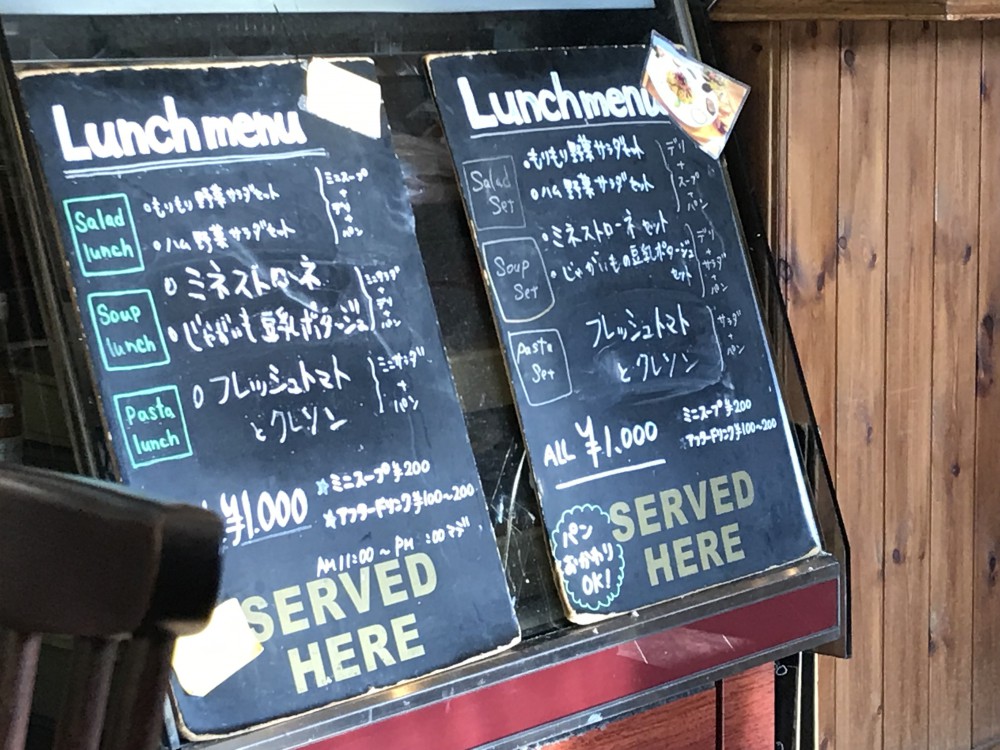 Lunch menu
Salad lunch
・もりもり野菜サラダセット
・ハム野菜サラダセット
ミニスープ
+
デリ
+
パン
Soup lunch
・ミネストローネ
・じゃがいも豆乳ポタージュ
ミニサラダ
+
デリ
+
パン
Pasta lunch
・フレッシュトマト
とクレソン
ミニサラダ
+
パン
¥1.000
☆ミニスープ¥200
★アフタードリンク¥100~200
AM 11:00 ~ PM :00マデ
SERVED
HERE
Lunch menu
Salad
Set
・もりもり野菜サラダセット
・ハム野菜サラダセット
デリ
+
スープ
+
パン
Soup
Set
・ミネストローネセット
・じゃがいもの豆乳ポタージュ
セット
デリ
+
サラダ
+
パン
Pasta
Set
フレッシュトマト
とクレソン
サラダ
+
パン
ALL ¥1.000
ミニスープ¥200
アフタードリンク¥100~200
パン
おかわり
OK!
SERVED
HERE